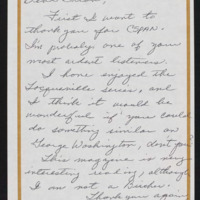 First I want to
thank you for CSPAN.
I'm probaly one of your
most ardent listeners.
I have enjoyed the
Toqueville series, and
I think it would be
wonderful if you could
do something similar on
George Washington, don't you?
This magazine is very
interesting reading, although
I am not a Bircher.
Thank you again